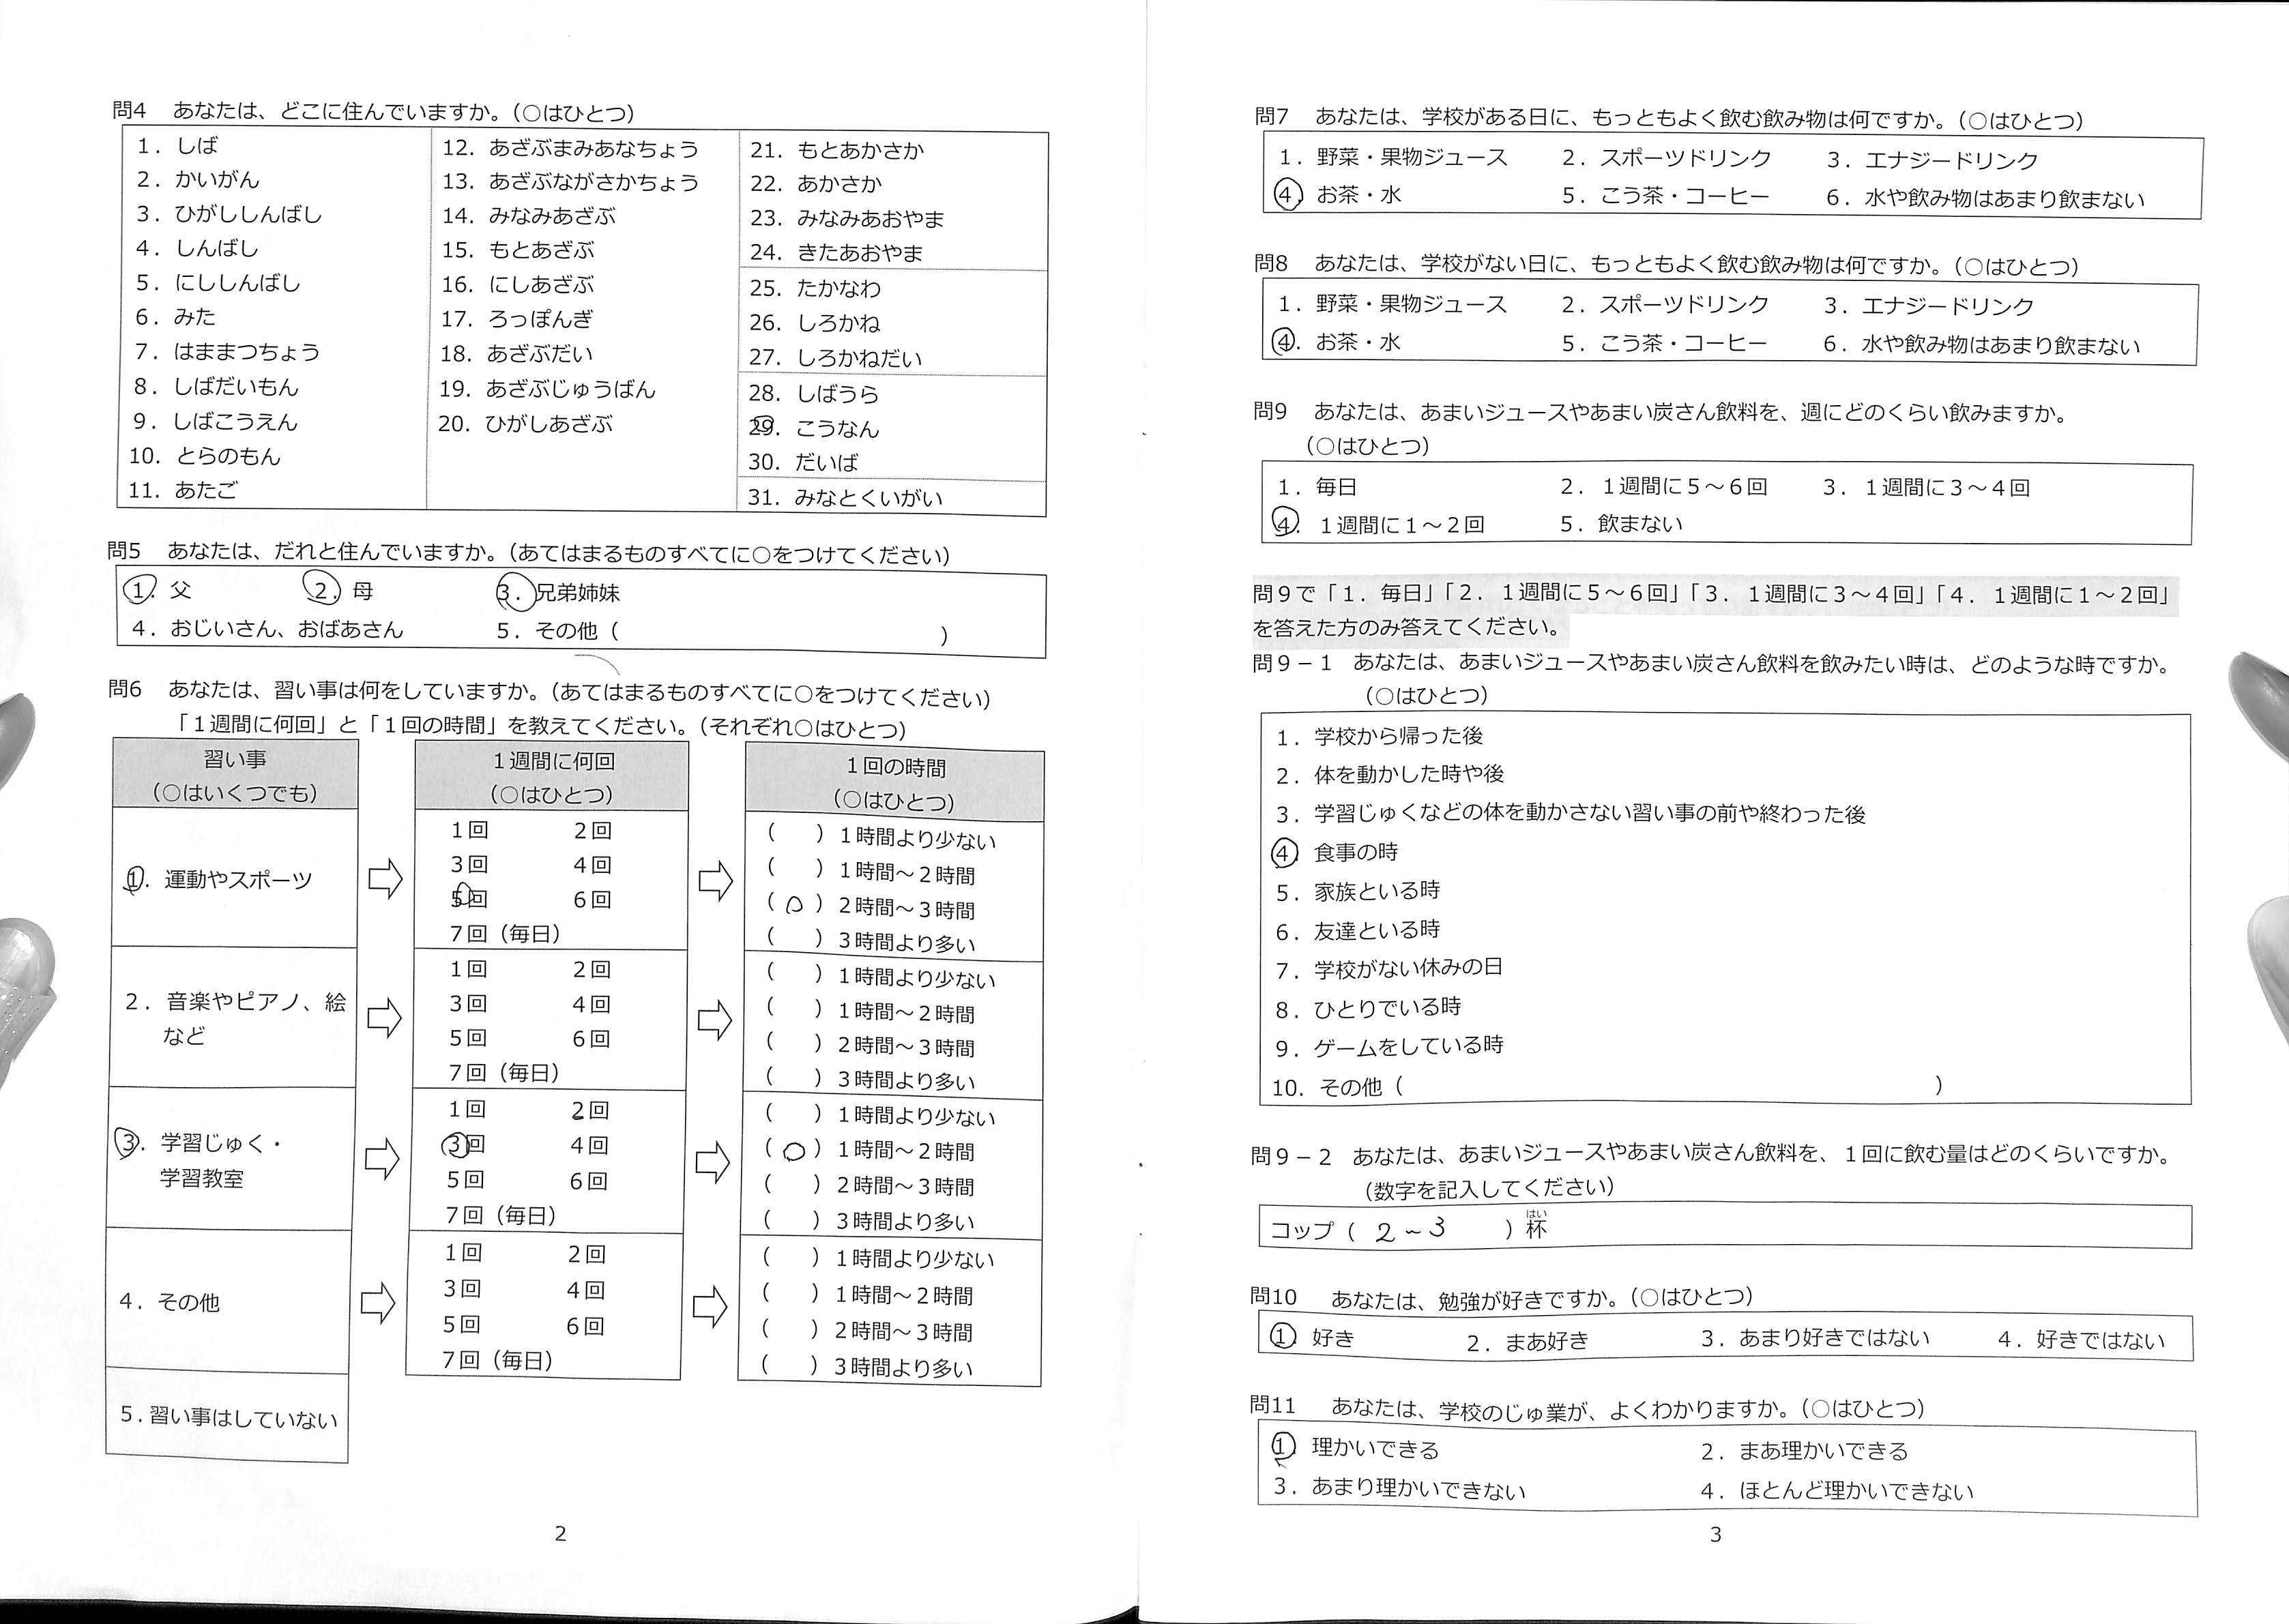 問4 あなたは、どこに住んでいますか。(○はひとつ)
1. しば
2. かいがん
3. ひがししんばし
4. しんばし
5. にししんばし
6. みた
7. はままつちょう
8. しばだいもん
9. しばこうえん
10. とらのもん
11. あたご
12. あざぶまみあなちょう
13. あざぶながさかちょう
14. みなみあざぶ
15. もとあざぶ
16. にしあざぶ
17. ろっぽんぎ
18. あざぶだい
19. あざぶじゅうばん
20. ひがしあざぶ
21. もとあかさか
22. あかさか
23. みなみあおやま
24. きたあおやま
25. たかなわ
26. しろかね
27. しろかねだい
28. しばうら
29. こうなん
30. だいば
31. みなとくいがい
問5 あなたは、だれと住んでいますか。(あてはまるものすべてに○をつけてください)
1. 父 2. 母 3. 兄弟姉妹
4. おじいさん、おばあさん 5. その他( )
問6 あなたは、習い事は何をしていますか。(あてはまるものすべてに○をつけてください)
「1週間に何回」と「1回の時間」を教えてください。(それぞれ○はひとつ)
習い事
(○はいくつでも)
1週間に何回
(○はひとつ)
1回の時間
(○はひとつ)
1. 運動やスポーツ
1回 2回
3回 4回
5回 6回
7回(毎日)
( )1時間より少ない
( )1時間~2時間
(○)2時間~3時間
( )3時間より多い
2. 音楽やピアノ、絵
など
1回 2回
3回 4回
5回 6回
7回(毎日)
( )1時間より少ない
( )1時間~2時間
( )2時間~3時間
( )3時間より多い
3. 学習じゅく・
学習教室
1回 2回
3回 4回
5回 6回
7回(毎日)
( )1時間より少ない
(○)1時間~2時間
( )2時間~3時間
( )3時間より多い
4. その他
1回 2回
3回 4回
5回 6回
7回(毎日)
( )1時間より少ない
( )1時間~2時間
( )2時間~3時間
( )3時間より多い
5. 習い事はしていない
2
問7 あなたは、学校がある日に、もっともよく飲む飲み物は何ですか。(○はひとつ)
1. 野菜・果物ジュース 2. スポーツドリンク 3. エナジードリンク
4. お茶・水 5. こう茶・コーヒー 6. 水や飲み物はあまり飲まない
問8 あなたは、学校がない日に、もっともよく飲む飲み物は何ですか。(○はひとつ)
1. 野菜・果物ジュース 2. スポーツドリンク 3. エナジードリンク
4. お茶・水 5. こう茶・コーヒー 6. 水や飲み物はあまり飲まない
問9 あなたは、あまいジュースやあまい炭さん飲料を、週にどのくらい飲みますか。
(○はひとつ)
1. 毎日 2. 1週間に5~6回 3. 1週間に3~4回
4. 1週間に1~2回 5. 飲まない
問9で「1. 毎日」「2. 1週間に5~6回」「3. 1週間に3~4回」「4. 1週間に1~2回」
を答えた方のみ答えてください。
問9-1 あなたは、あまいジュースやあまい炭さん飲料を飲みたい時は、どのような時ですか。
(○はひとつ)
1. 学校から帰った後
2. 体を動かした時や後
3. 学習じゅくなどの体を動かさない習い事の前や終わった後
4. 食事の時
5. 家族といる時
6. 友達といる時
7. 学校がない休みの日
8. ひとりでいる時
9. ゲームをしている時
10. その他( )
問9-2 あなたは、あまいジュースやあまい炭さん飲料を、1回に飲む量はどのくらいですか。
(数字を記入してください)
はい
コップ( 2~3 )杯
問10 あなたは、勉強が好きですか。(○はひとつ)
1. 好き 2. まあ好き 3. あまり好きではない 4. 好きではない
問11 あなたは、学校のじゅ業が、よくわかりますか。(○はひとつ)
1. 理かいできる 2. まあ理かいできる
3. あまり理かいできない 4. ほとんど理かいできない
3